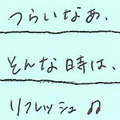 つらいなあ、
そんな時は、
リフレッシュの